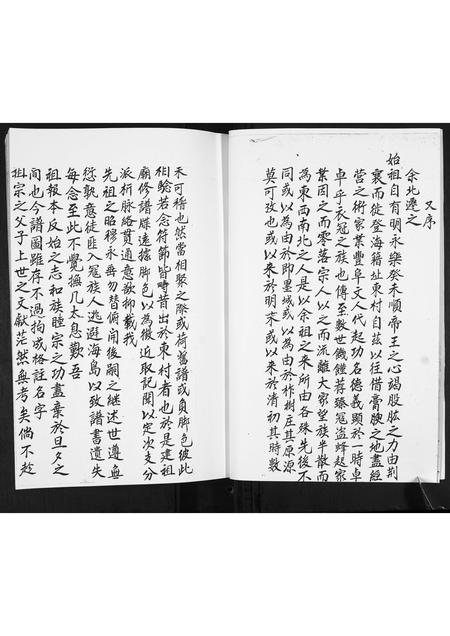 又序
余北遷之
始祖自有明永樂癸未順帝王之心竭股肱之力由荊
襄而徙登海籍址東村自茲以往借膏腴之地盡經
營之術家業豐阜文人代起功名德義顯於一時卓
卓乎衣冠之族也傳至數世饑饉荐臻冦盜蜂起家
業因之而零落宗人以之而流離大家望族半散而
為東西南北之人是以余祖之来所由各殊先後不
同或以為由於即墨城或以為由於柞樹庄其原源
莫可攷也或以来於明末或以来於清初其時數
未可稽也然當相聚之際或荷舊譜或負脚色彼此
相驗若合符節皆時昔出於東村者也於是建祖
廟修譜牒遠據脚色以為徵近取記聞以定次支分
派析脉絡貫通意歟抑載我
先祖之昭穆永毋勿替俯開後嗣之継述世遵無
愆孰意徒匪入冦族人逃避海島以致譜書遺失
每念至此不覺撫几太息歎吾
祖報本反始之志和族睦宗之功盡棄於旦夕之
間也今譜圖雖存不過拘成格註名字
祖宗之父子上世之文献茫然無考矣倘不趁